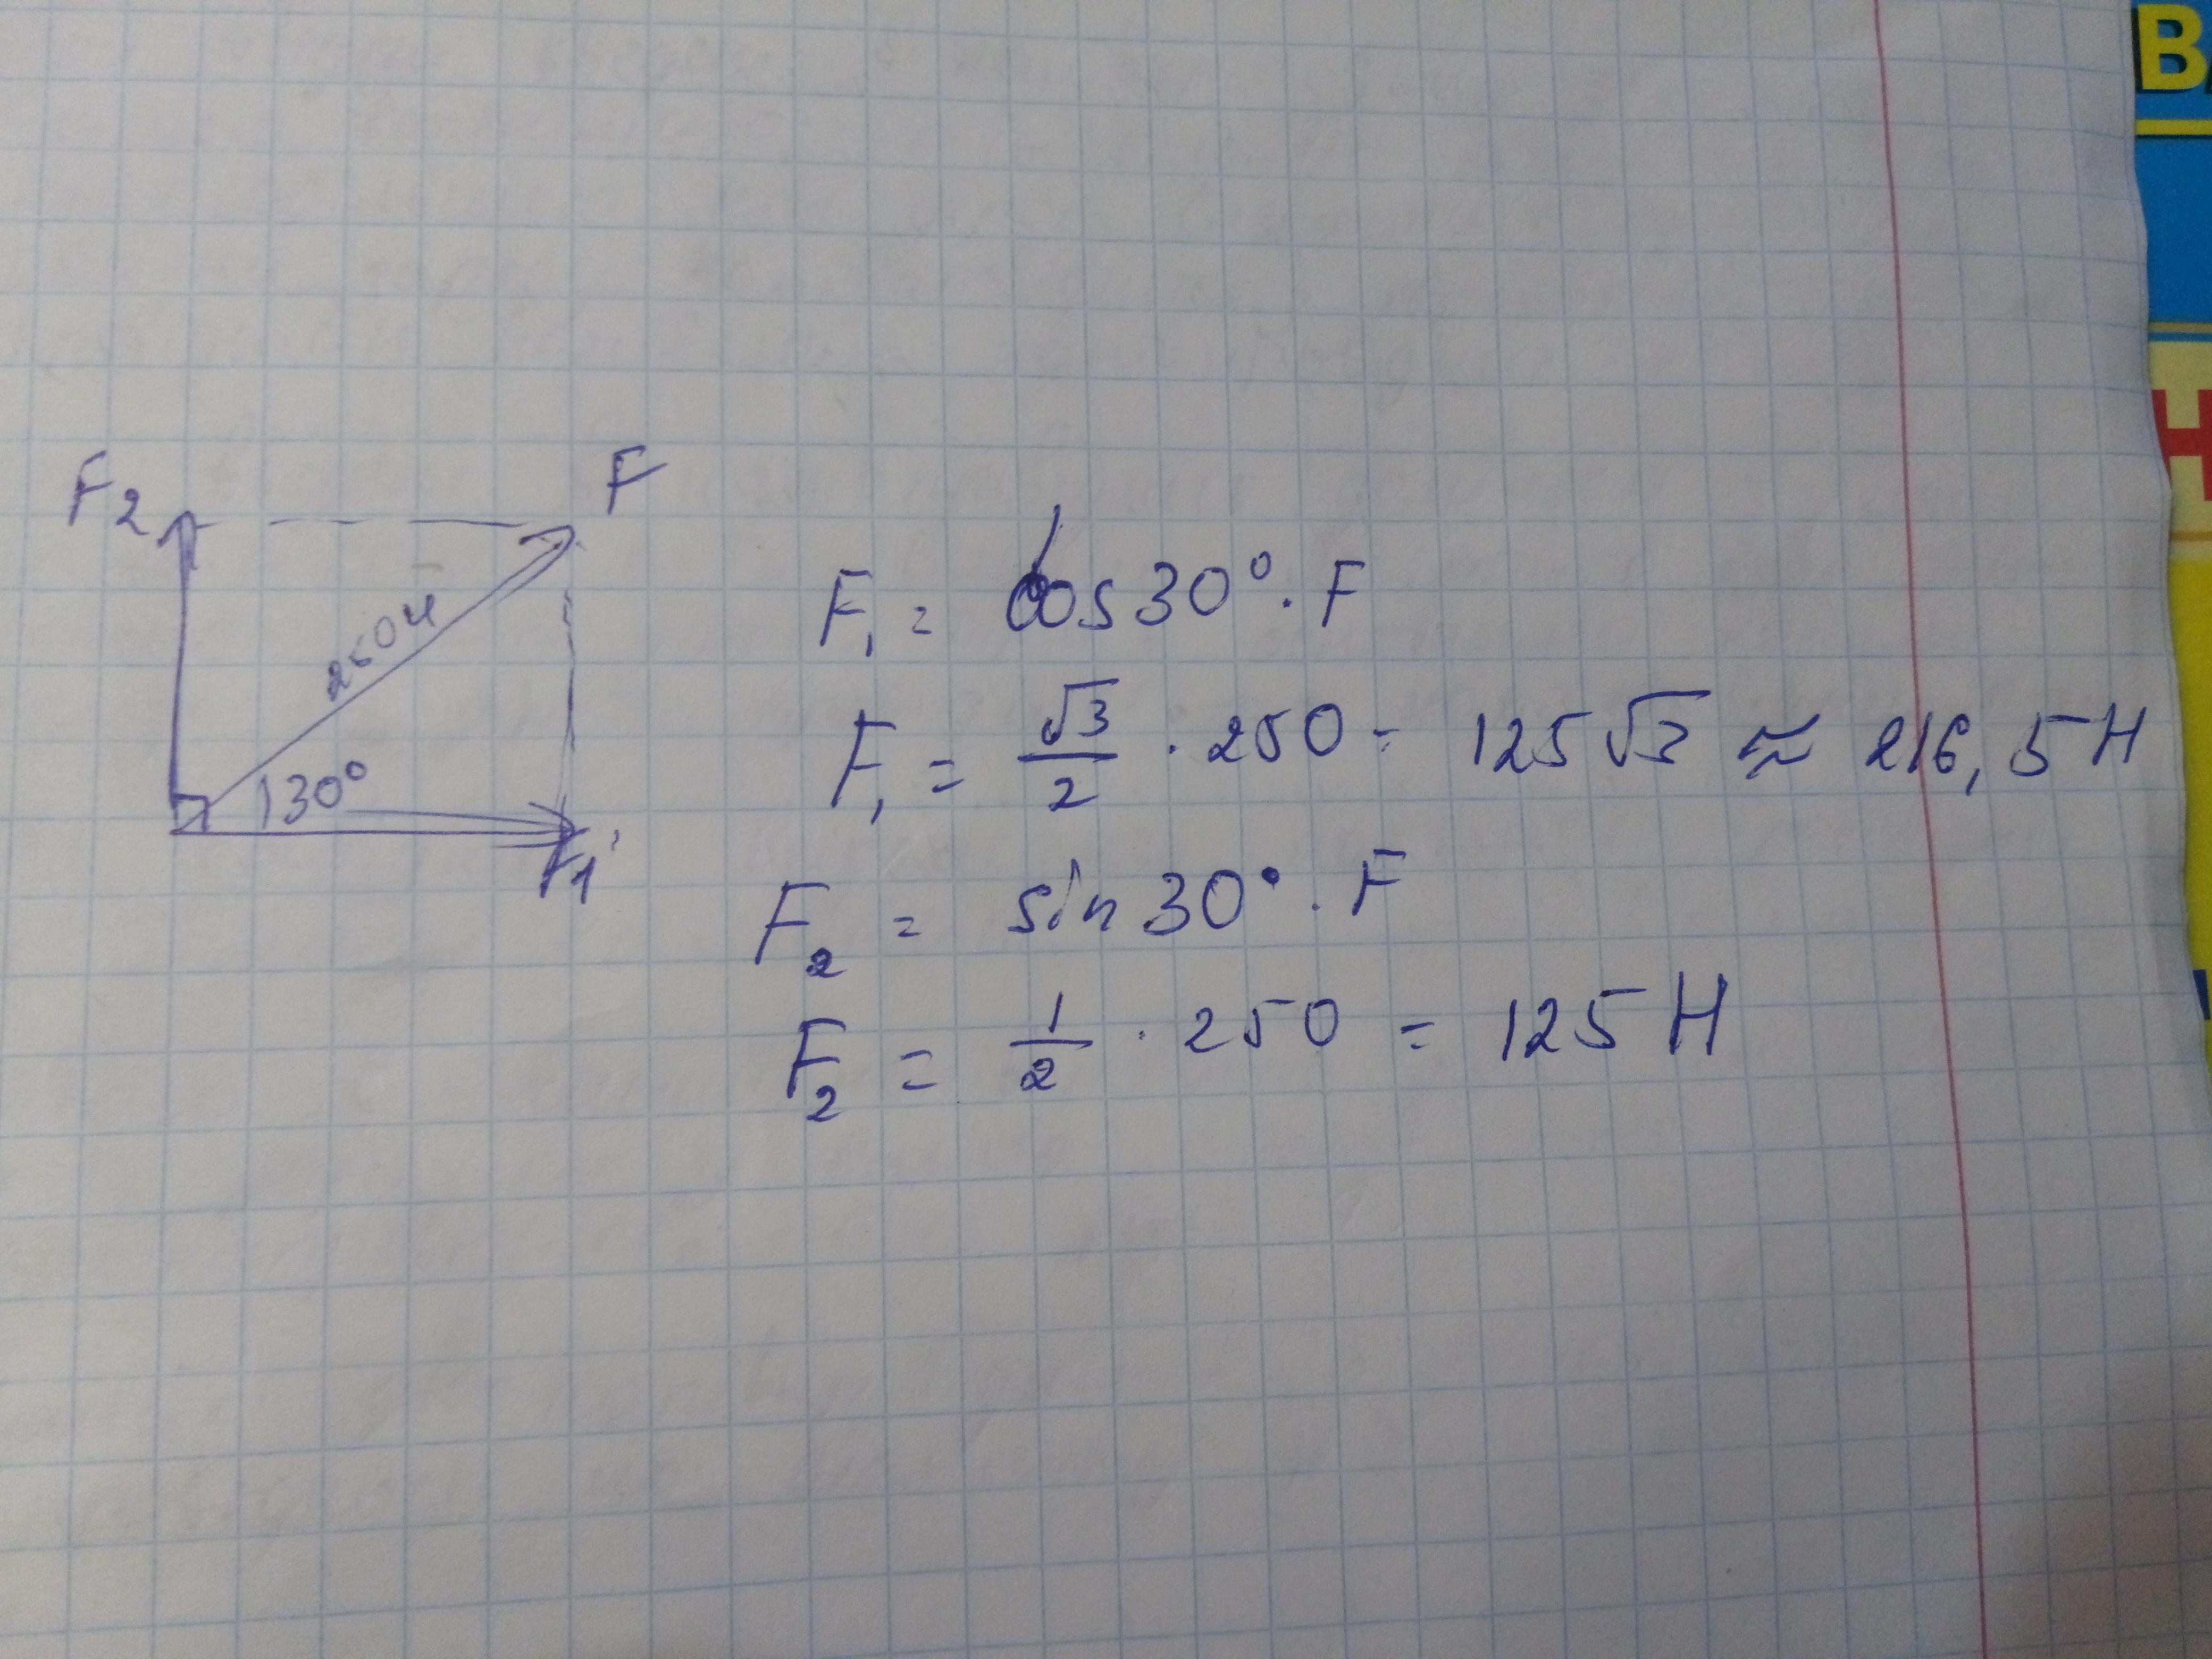 F2
F
250н
30°
F1
F₁ = cos 30° · F
F₁ = √3/2 · 250 = 125√3 ≈ 216,5 Н
F₂ = sin 30° · F
F₂ = 1/2 · 250 = 125 Н
В
Н